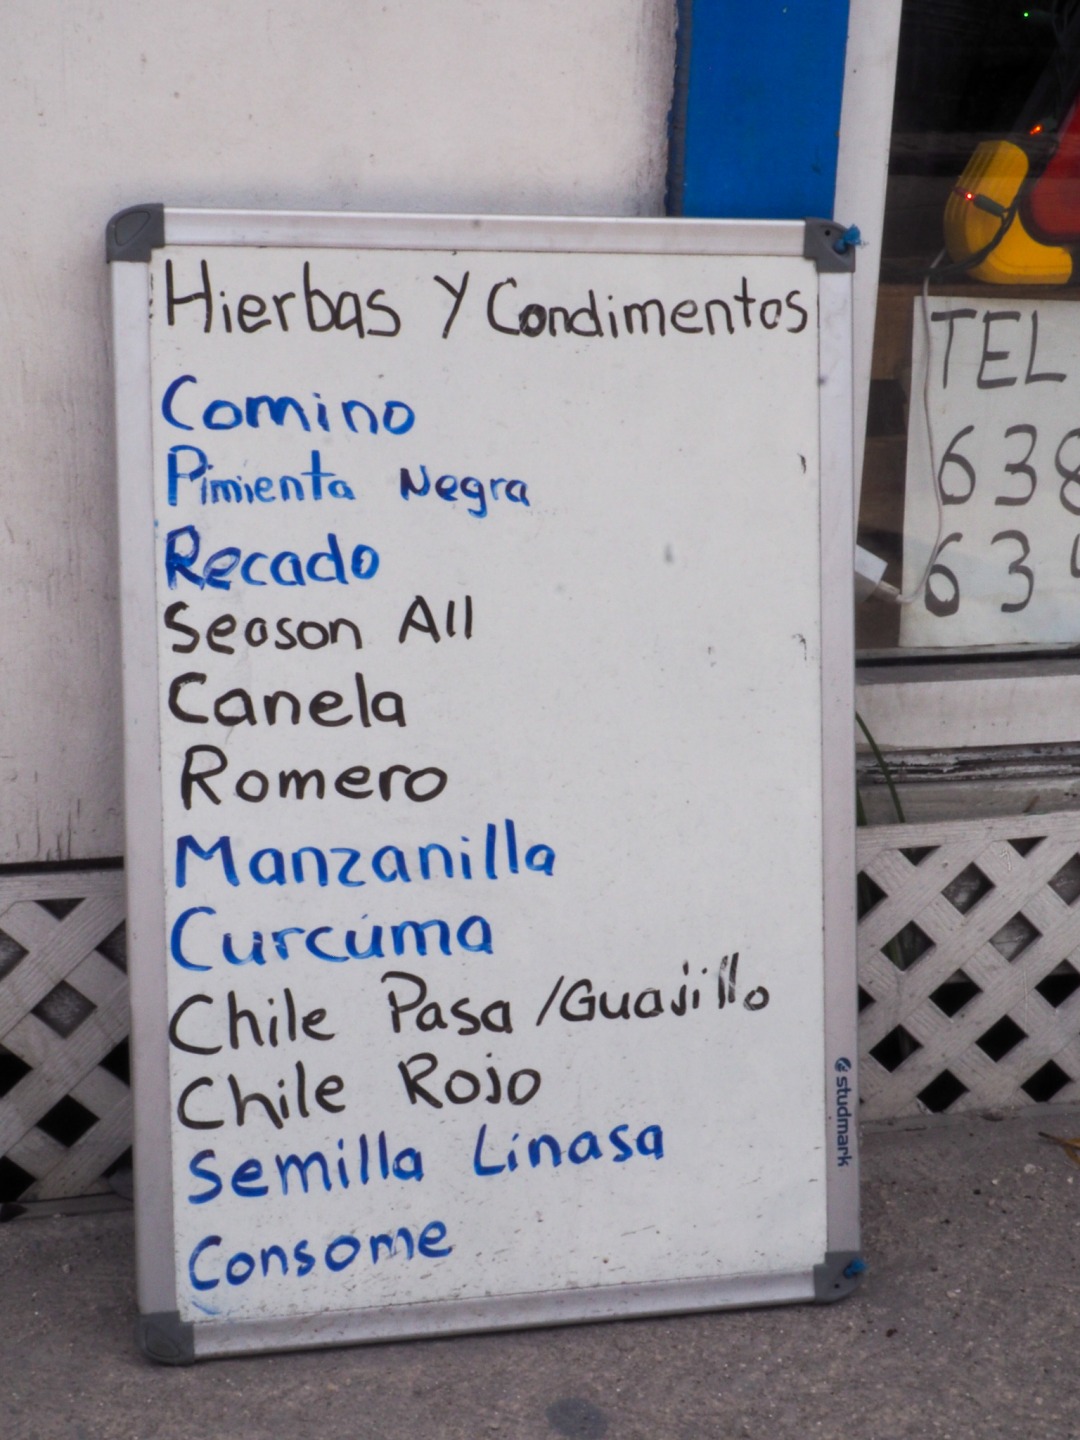 Hierbas Y Condimentos
Comino
Pimienta Negra
Recado
Season All
Canela
Romero
Manzanilla
Curcúma
Chile Pasa /Guajillo
Chile Rojo
Semilla Linasa
Consome
studmark
TEL
638
63